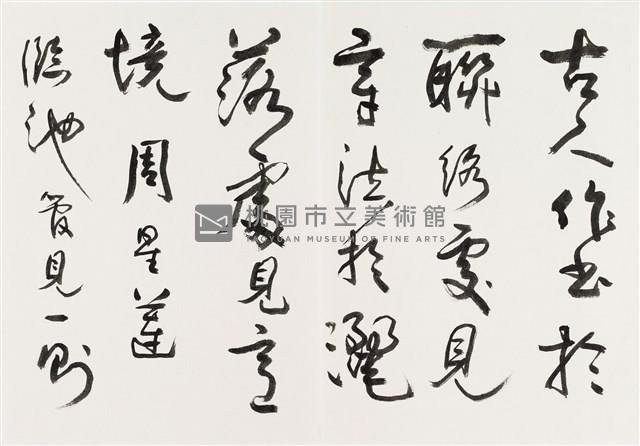 古人作書於
聯絡處見
章法於灑
落處見意
境 周星蓮
臨池管見一則
桃園市立美術館
TAOYUAN MUSEUM OF FINE ARTS